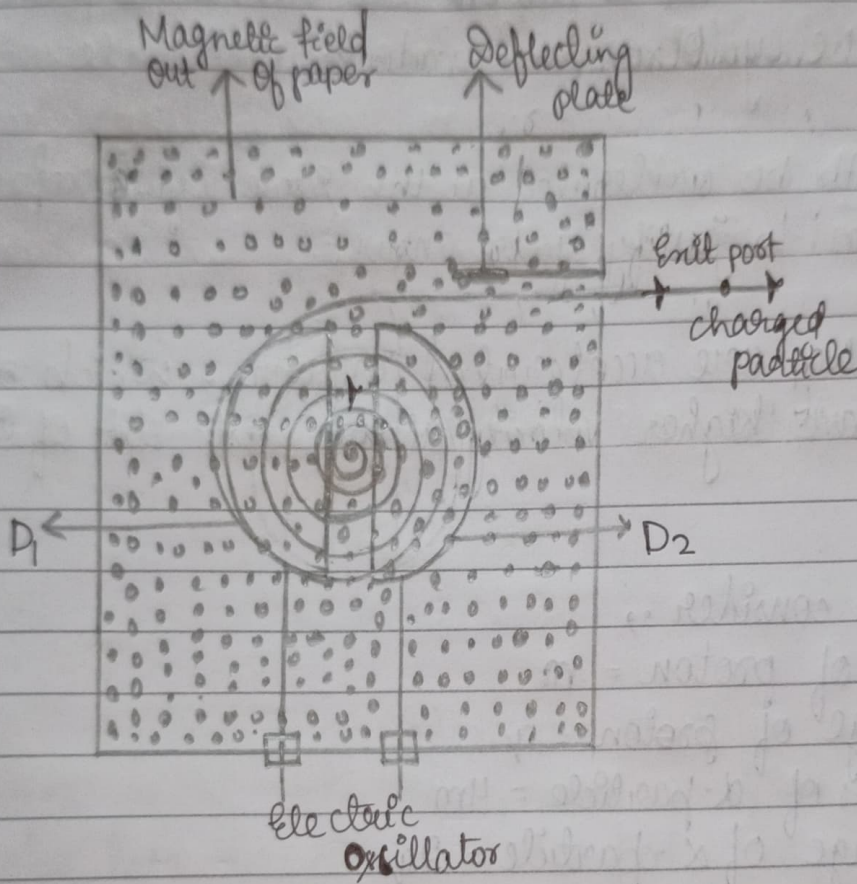 Magnetic field
out of paper
Deflecting
plate
Exit port
charged
particle
D1
D2
Electric
Oscillator